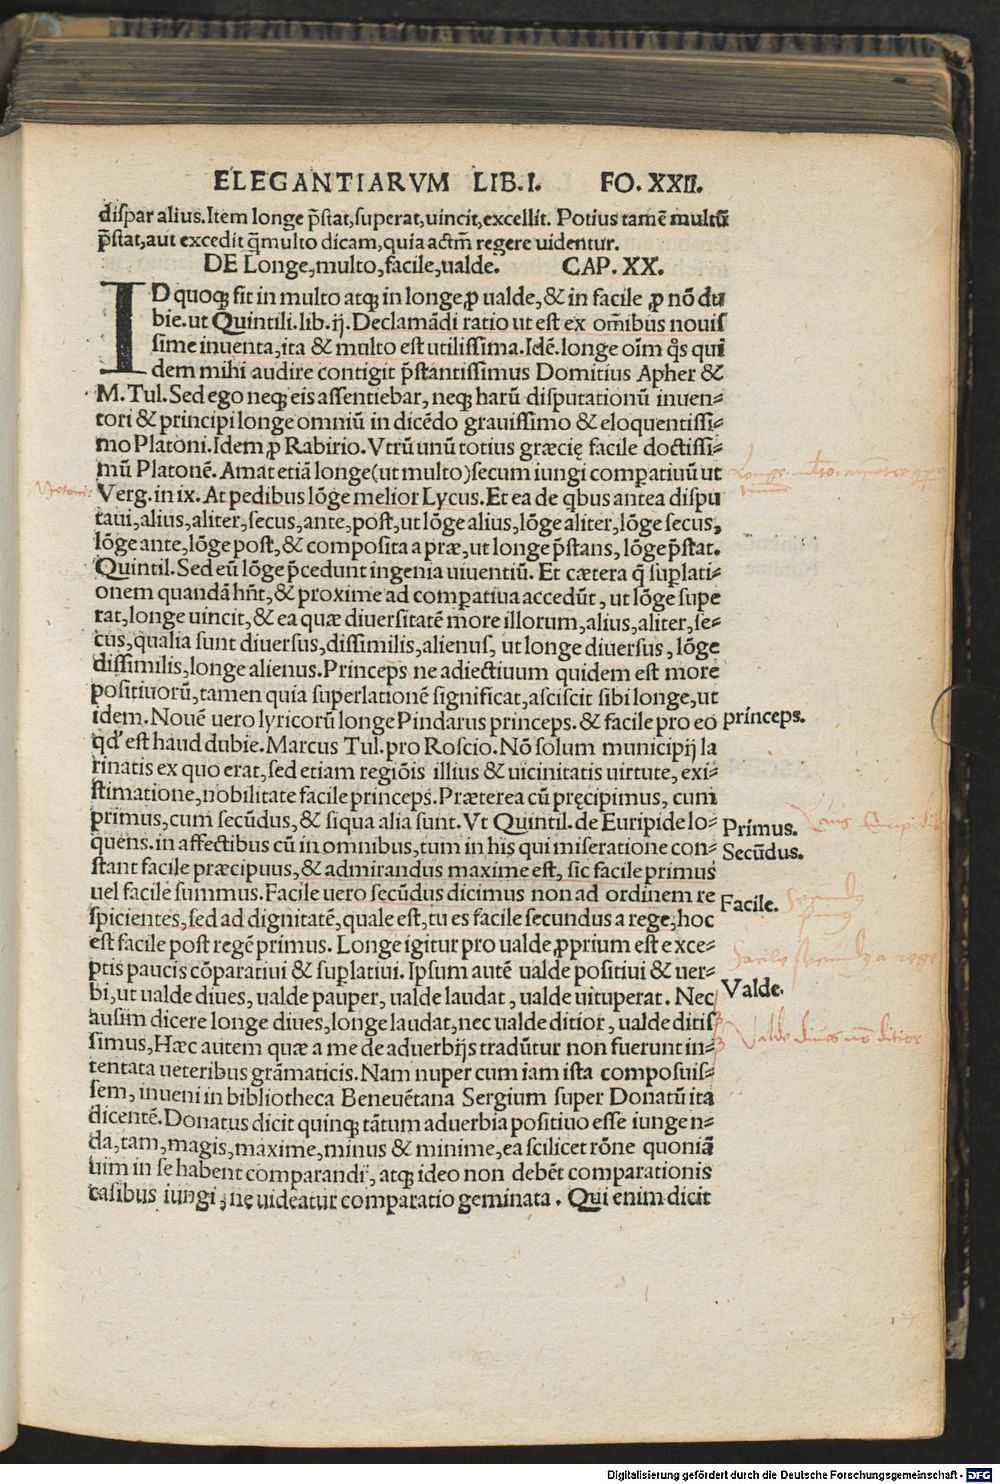 ELEGANTIARVM LIB. I. FO. XXII.
dispar alius. Item longe p̄stat, superat, uincit, excellit. Potius tamē multū
p̄stat, aut excedit q̄ multo dicam, quia actm̄ regere uidentur.
DE Longe, multo, facile, ualde. CAP. XX.
ID quoqꝫ fit in multo atqꝫ in longe, ꝓ ualde, & in facile ꝓ nō du
bie. ut Quintili. lib. ij. Declamādi ratio ut est ex om̄ibus nouis
sime inuenta, ita & multo est utilissima. Idē. longe oīm q̊s qui
dem mihi audire contigit p̄stantissimus Domitius Apher &
M. Tul. Sed ego neqꝫ eis assentiebar, neqꝫ harū disputationū inuen⸗
tori & principi longe omniū in dicēdo grauissimo & eloquentissi⸗
mo Platoni. Idem ꝓ Rabirio. Vtrū unū totius græcię facile doctissi⸗
mū Platonē. Amat etiā longe (ut multo) secum iungi compatiuū ut
Verg. in ix. At pedibus lōge melior Lycus. Et ea de qbus antea dispu
taui, alius, aliter, secus, ante, post, ut lōge alius, lōge aliter, lōge secus,
lōge ante, lōge post, & composita a præ, ut longe p̄stans, lōge p̄stat.
Quintil. Sed eū lōge p̄cedunt ingenia uiuentiū. Et cætera q̄ suꝑlati⸗
onem quandā hn̄t, & proxime ad compatiua accedūt, ut lōge supe
rat, longe uincit, & ea quæ diuersitatē more illorum, alius, aliter, se⸗
cus, qualia sunt diuersus, dissimilis, alienus, ut longe diuersus, lōge
dissimilis, longe alienus. Princeps ne adiectiuum quidem est more
positiuorū, tamen quia superlationē significat, asciscit sibi longe, ut
idem. Nouē uero lyricorū longe Pindarus princeps. & facile pro eo
qd' est haud dubie. Marcus Tul. pro Roscio. Nō solum municipij la
rinatis ex quo erat, sed etiam regiōis illius & uicinitatis uirtute, exi⸗
stimatione, nobilitate facile princeps. Præterea cū pręcipimus, cum
primus, cum secūdus, & siqua alia sunt. Vt Quintil. de Euripide lo⸗
quens. in affectibus cū in omnibus, tum in his qui miseratione con⸗
stant facile præcipuus, & admirandus maxime est, sic facile primus
uel facile summus. Facile uero secūdus dicimus non ad ordinem re
spicientes, sed ad dignitatē, quale est, tu es facile secundus a rege, hoc
est facile post regē primus. Longe igitur pro ualde ꝓprium est exce⸗
ptis paucis cōparatiui & suꝑlatiui. Ipsum autē ualde positiui & uer⸗
bi, ut ualde diues, ualde pauper, ualde laudat, ualde uituperat. Nec
ausim dicere longe diues, longe laudat, nec ualde ditior, ualde ditis
simus, Hæc autem quæ a me de aduerbijs tradūtur non fuerunt in⸗
tentata ueteribus grāmaticis. Nam nuper cum iam ista composuis⸗
sem, inueni in bibliotheca Beneuētana Sergium super Donatū ita
dicentē. Donatus dicit quinqꝫ tātum aduerbia positiuo esse iungen⸗
da, tam, magis, maxime, minus & minime, ea scilicet rōne quoniā
uim in se habent comparandi, atqꝫ ideo non debēt comparationis
casibus iungi, ne uideatur comparatio geminata. Qui enim dicit
princeps.
Primus.
Secūdus.
Facile.
Valde.
facile secundus a rege
Valde diues nō ditior
Digitalisierung gefördert durch die Deutsche Forschungsgemeinschaft - DFG